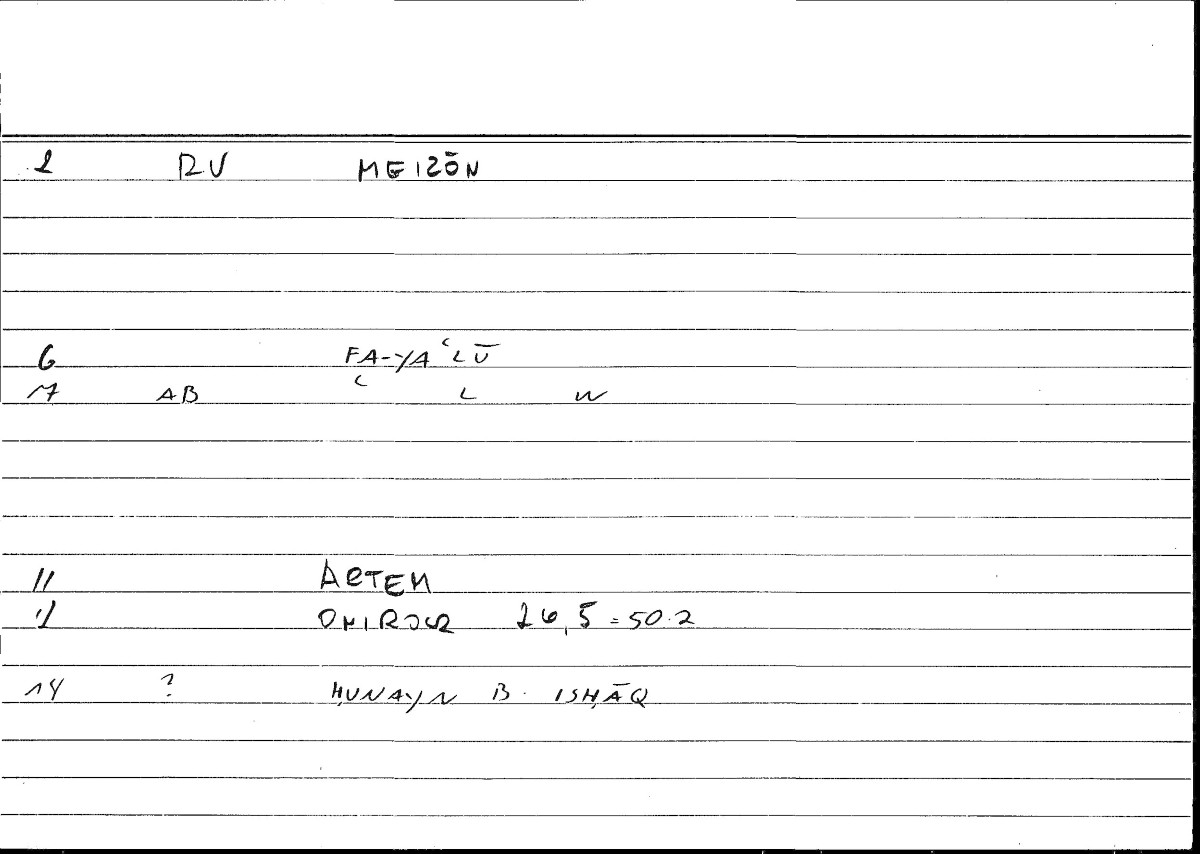 1 RV MEIZŌN
6 FA-YAʿLŪ
7 AB ʿ L W
11 ARTEM
12 ONIROCR 26,5 = 50.2
14 ? ḤUNAYN B. ISḤĀQ